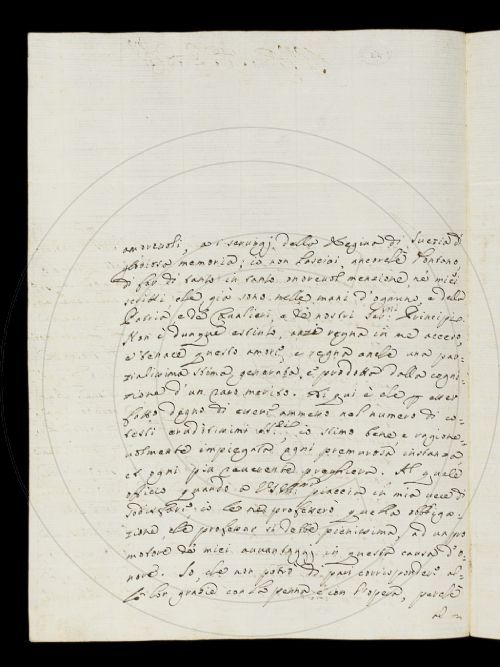 amorevoli, a i servigj della Regina di Svezia di
gloriosa memoria; io non lasciai, ancorchè lontano,
di far di tanto in tanto onorevol menzione, ne' miei
scritti che già sono nelle mani d'ognuno, e della
Patria, e de' Cavalieri, e de' nostri Ser.mi Principi.
Non è dunque estinto, anzi regna in me acceso,
e tenace questo amore, e regna anche una par-
zialissima stima generata, e prodotta dalla cogni-
zione d'un raro merito. Di qui è che p esser
fatto degno di essere ammesso nel numero di co-
testi eruditissimi io stimo bene e ragione-
volmente impiegata ogni premurosa instanza
et ogni più reverente preghiera. Al quale
officio quando a piaccia in mia vece di
sodisfare, io le ne professerò quella obbliga-
zione, che professar si debbe pienissima, ad un pro
motore de' miei avvantaggj in questa causa d'o-
nore. So, che non potrò di pari corrispondere al-
le lor grazie con la penna, e con l'opera, perchè
al